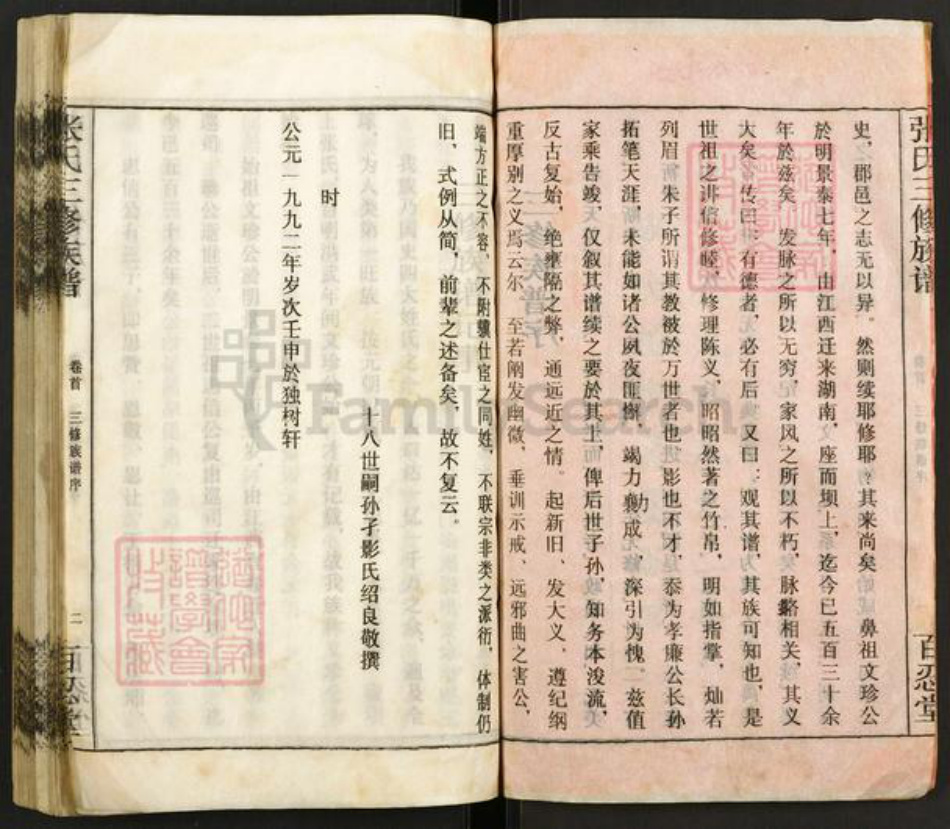 张氏三修族谱
百忍堂
史，郡邑之志无以异。然则续耶修耶？其来尚矣
鼻祖文珍公
於明景泰七年，由江西迁来湖南，座而坝上
迄今已五百三十余
年於兹矣，发脉之所以无穷，家风之所以不朽，脉络相关，其义
大矣
传曰
有德者，必有后，又曰：观其谱，其族可知也，是
世祖之讲信修睦，修理陈义，昭昭然著之竹帛，明如指掌，灿若
列眉，朱子所谓其教被於万世者也
影也不才，忝为孝廉公长孙
拓笔天涯，未能如诸公夙夜匪懈，竭力襄成，深引为愧。兹值
力
家乘告竣，仅叙其谱续之要於其上，俾后世子孙，知务本浚流，
反古复始，绝壅隔之弊，通远近之情。起新旧、发大义、遵纪纲
重厚别之义焉云尔，至若阐发幽微、垂训示戒、远邪曲之害公，
端方正之不容，不附骥仕宦之同姓，不联宗非类之派衍，体制仍
旧，式例从简，前辈之述备矣，故不复云。
十八世嗣孙孑影氏绍良敬撰
时
公元一九九二年岁次壬申於独树轩
张氏三修族谱
卷首
三修族谱序
二
百忍堂
FamilySearch